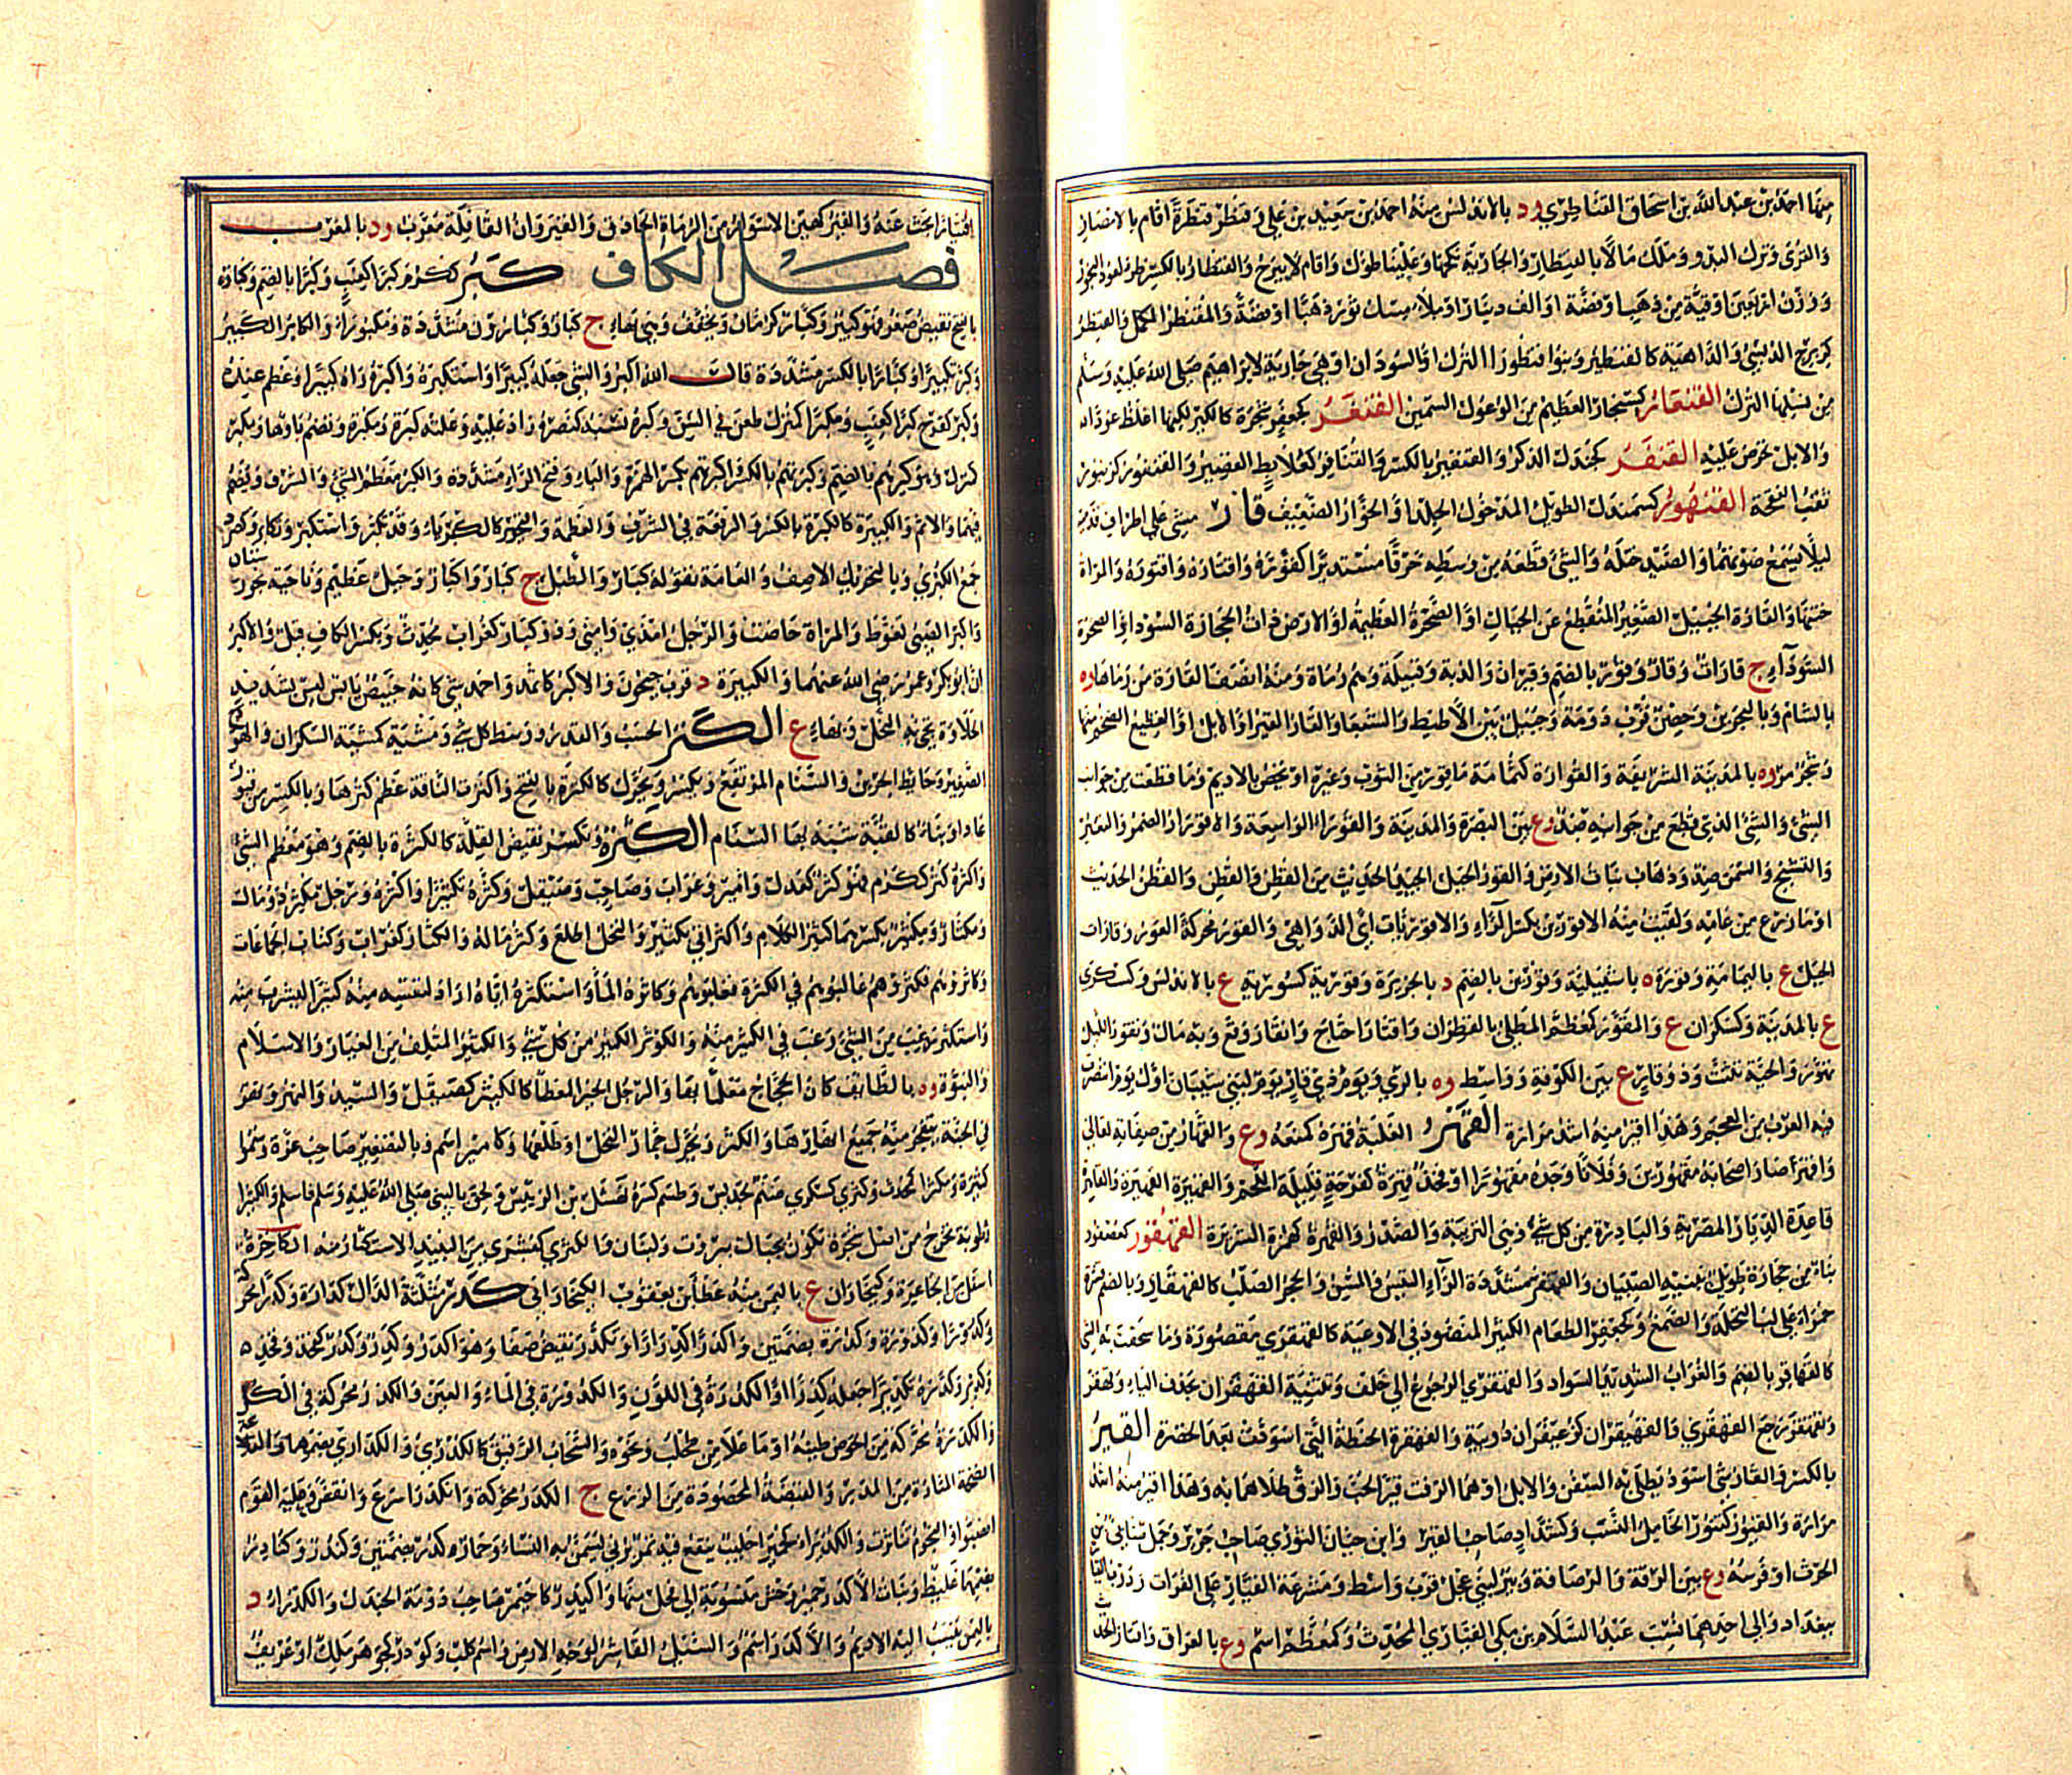 منها احمد بن عبد الله بن اسحاق القناطري ود بالاندلس منه احمد بن سعيد بن علي وقنطر قنطرة اقام بالامصار
والقرى وترك البدو وملك مالا بالقنطار والجارية نكحها وعلينا طول واقام لا يبرح والقنطار بالكسر طراء لعود البخور
ووزن اربعين اوقية من ذهب او فضة او الف دينار او ملاء مسك ثور ذهبا او فضة والمقنطر المكمل والقنطر
كزبرج الدبسي والداهية كالقنطير وبنو قنطورا الترك او السودان او هي جارية لابراهيم صلى الله عليه وسلم
من نسلها الترك القنعار كسنجار العظيم من الوعول السمين القنغر كجعفر شجرة كالكبر لكنها اغلظ عودا
والابل تحرص عليه القنفر كجندل الذكر والقنفير بالكسر والقنافر كعلابط القصير والقنفور كزنبور
ثقب الفقحة القنهور كسمندل الطويل المدخول الجلد او الخوار الضعيف قار مشى على اطراف قدميه
ليلا يسمع صوتهما والصيد ختله والشيء قطعه من وسطه خرقا مستديرا كقوره واقتاره واقتوره والمراة
ختنها والقارة الجبيل الصغير المنقطع عن الجبال او الصخرة العظيمة او الارض ذات الحجارة السود او الصخرة
السوداء ج قارات وقار وقور بالضم وقيران والدبة وقبيلة وهم رماة ومنه انصف القارة من راماها وه
بالشام وبالبحرين وحصن قرب دومة وجبيل بين الاطيط والشبعا والقار القير او الابل او القطيع الضخم منها
وشجر مر وه بالمدينة الشريفة والقوارة كثمامة ما قور من الثوب وغيره او يختص بالاديم وما قطعت من جوانب
الشيء والشيء الذي قطع من جوانبه ضد وع بين البصرة والمدينة والقوراء الواسعة والاقورار الضمر والتغير
والتشنج والسمن ضد وذهاب نبات الارض والقور الحبل الجيد الحديث من القطن والقطن والقطن الحديث
او ما زرع من عامه ولقيت منه الاقورين بكسر الراء والاقوريات اي الدواهي والقور محركة العور وقارات
الحبل ع باليمامة وقورة ه باشبيلية وقورين بالضم د بالجزيرة وقورية كسورية ع بالاندلس وكسكرى
ع بالمدينة وكسكران ع والمقور كمعظم المطلي بالقطران واقتار احتاج وانقار وقع وبه مال وتقور الليل
تهور والحية تثنت وذو قار ع بين الكوفة وواسط وه بالري ويوم ذي قار يوم لبني شيبان اول يوم انتصرت
فيه العرب من العجم وهذا اقير منه اشد مرارة القهر الغلبة قهره كمنعه وع والقهار من صفاته تعالى
واقهر صار اصحابه مقهورين وفلانا وجده مقهورا او فخذ قهرة كفرحة قليلة اللحم والقهيرة القهيرة والقاهرة
قاعدة الديار المصرية والبادرة من كل شيء وهي التريبة والصدر والقهرة كهمزة الشريرة القهقور كعصفور
بناء من حجارة طويل يبنيه الصبيان والقهقر مشددة الراء التيس والمسن والحجر الصلب كالقهقار وبالضم قشرة
حمراء على لب النخلة والصمغ وكجعفر الطعام الكثير المنضود في الاوعية كالقهقرى مقصورة وما سحقت به الشيء
كالقهاقر بالضم والغراب الشديد السواد والقهقرى الرجوع الى خلف وتثنية القهقران بحذف الياء وقهقر
وتقهقر رجع القهقرى والقهيقران كزعيفران دويبة والقهقرة الحنطة التي اسودت بعد الخضرة القير
بالكسر والقار شيء اسود يطلى به السفن والابل او هما الزفت قير الحب والزق طلاهما به وهذا اقير منه اشد
مرارة والقيور كتنور الخامل النسب وكشداد صاحب القير وابن حيان الثوري صاحب جرير وجمل ضابئ بن
الحرث او فرسه وع بين الرقة والرصافة وبئر لبني عجل قرب واسط ومشرعة القيار على الفرات ودرب القيار
ببغداد والى احدهما نسب عبد السلام بن مكي القياري المحدث وكمعظم اسم وع بالعراق واقتار الحديث
اقتيارا بحث عنه والقير كهين الاسوار من الرماة الحاذق والقيروان القافلة معرب ود بالمغرب
فصل الكاف كبر ككرم كبرا كعنب وكبرا بالضم وكبارة
بالفتح نقيض صغر فهو كبير وكبار كرمان ويخفف وهي بهاء ج كبار وكبارون مشددة ومكبوراء والكابر الكبير
وكبر تكبيرا وكبارا بالكسر مشددة قال الله اكبر والشيء جعله كبيرا واستكبره واكبره راه كبيرا وعظم عنده
وكبر كفرح كبرا كعنب ومكبرا كمنزل طعن في السن وكبره بسنة كنصره زاد عليه وعلته كبرة ومكبرة وتضم باوها ومكبر
كمنزل وهو كبرهم بالضم وكبرتهم بالكسر واكبرتهم بكسر الهمزة والباء وفتح الراء مشددة والكبر معظم الشيء والشرف ويضم
فيهما والاثم والكبيرة كالكبرة بالكسر والرفعة في الشرف والعظمة والتجبر كالكبرياء وقد تكبر واستكبر وتكابر وكصرد
جمع الكبرى وبالتحريك الاصف والعامة تقوله كبار والطبل ج كبار واكبار وجبل عظيم وناحية بخورستان
واكبر الصبي تغوط والمراة حاضت والرجل امذى وامنى وذو كبار كغراب محدث وبكسر الكاف قيل والاكبران
ابو بكر وعمر رضي الله عنهما والكبيرة د قرب جيحون والاكبر كاثمد واحمد شيء كانه خبيص يابس ليس بشديد
الحلاوة يجيء به النحل وبهاء ع الكتر الحسب والقدر ووسط كل شيء ومشية كمشية السكران والهودج
الصغير وحائط الجرين والسنام المرتفع ويكسر ويحرك كالكترة بالفتح واكترت الناقة عظم كترها وبالكسر من قبور
عاد او بناء كالقبة شبه بها السنام الكثرة وتكسر نقيض القلة كالكثر بالضم وهو معظم الشيء
واكثره كثر ككرم فهو كثر كعدل وامير وغراب وصاحب وصيقل وكثره تكثيرا واكثره ورجل مكثر ذو مال
ومكثار ومكثير بكسرهما كثير الكلام واكثر اتى بكثير والنخل اطلع وكثر ماله والكثار كغراب وكتاب الجماعات
وكاثروهم فكثروهم غالبوهم في الكثرة فغلبوهم وكاثره الماء واستكثره اياه اراد لنفسه منه كثيرا ليشرب منه
واستكثر من الشيء رغب في الكثير منه والكوثر الكثير من كل شيء والكثير الملتف من الغبار والاسلام
والنبوة وه بالطائف كان الحجاج معلما بها والرجل الخير المعطاء كالكيثر كصيقل والسيد والنهر ونهر
في الجنة يتفجر منه جميع انهارها والكثر ويحرك جمار النخل او طلعها وكامير اسم وبالتصغير صاحب عزة وسموا
كثيرة ومكثرا كمحدث وكثرى كسكرى صنم لجديس وطسم كسره نهشل بن الربيس ولحق بالنبي صلى الله عليه وسلم فاسلم والكثيرا
رطوبة تخرج من اصل شجرة تكون بجبال بيروت ولبنان والكثرى كبشرى من النبيذ الاستكثار منه الكاخرة
اسفل من الجاعرة وكيخاران ع باليمن منه عطاء بن يعقوب الكيخاراني كدر مثلثة الدال كدارة وكدرا محركة
وكدورا وكدورة وكدرة بضمتين واكدر اكديرارا وتكدر نقيض صفا وهو اكدر وكدر وكدر كفخذ وفخذ
وكدير وكدره تكديرا جعله كدرا او الكدرة في اللون والكدورة في الماء والعين والكدر محركة في الكل
والكدرة محركة من الحوض طينه او ما علاه من طحلب ونحوه والسحاب الرقيق كالكدري والكداري بضمهما والقلاعة
الضخمة المثارة من المدر والقبضة المحصودة من الزرع ج الكدر محركة وانكدر اسرع وانقض وعليه القوم
انصبوا والنجوم تناثرت والكديراء كحميراء حليب ينقع فيه تمر برني يسمن به النساء وحمار كدر بضمتين وكندر وكنادر
بضمهما غليظ وبنات الاكدر حمير وحش منسوبة الى فحل منها واكيدر كاحيمر صاحب دومة الجندل والكدراء د
باليمن ينسب اليه الاديم والاكدر اسم والسيل القاشر لوجه الارض واسم كلب وكودر كجوهر ملك او عريف